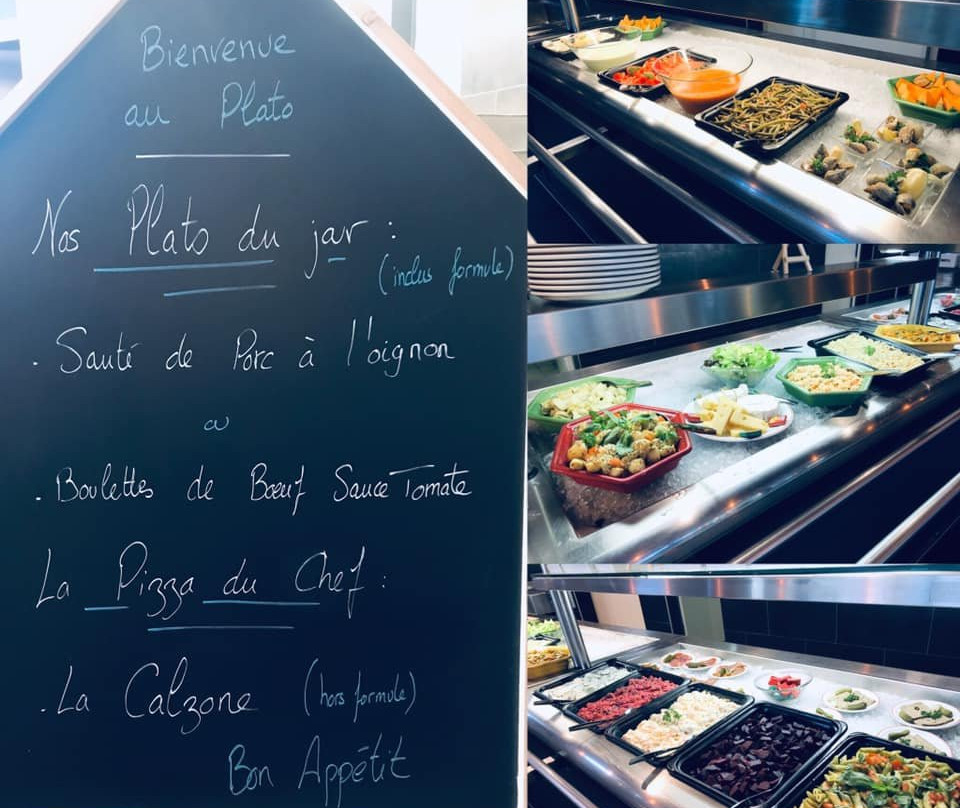 Bienvenue
au Plato
Nos Plato du jour :
(inclus formule)
. Sauté de Porc à l'oignon
ou
. Boulettes de Bœuf Sauce Tomate
La Pizza du Chef :
. La Calzone (hors formule)
Bon Appétit